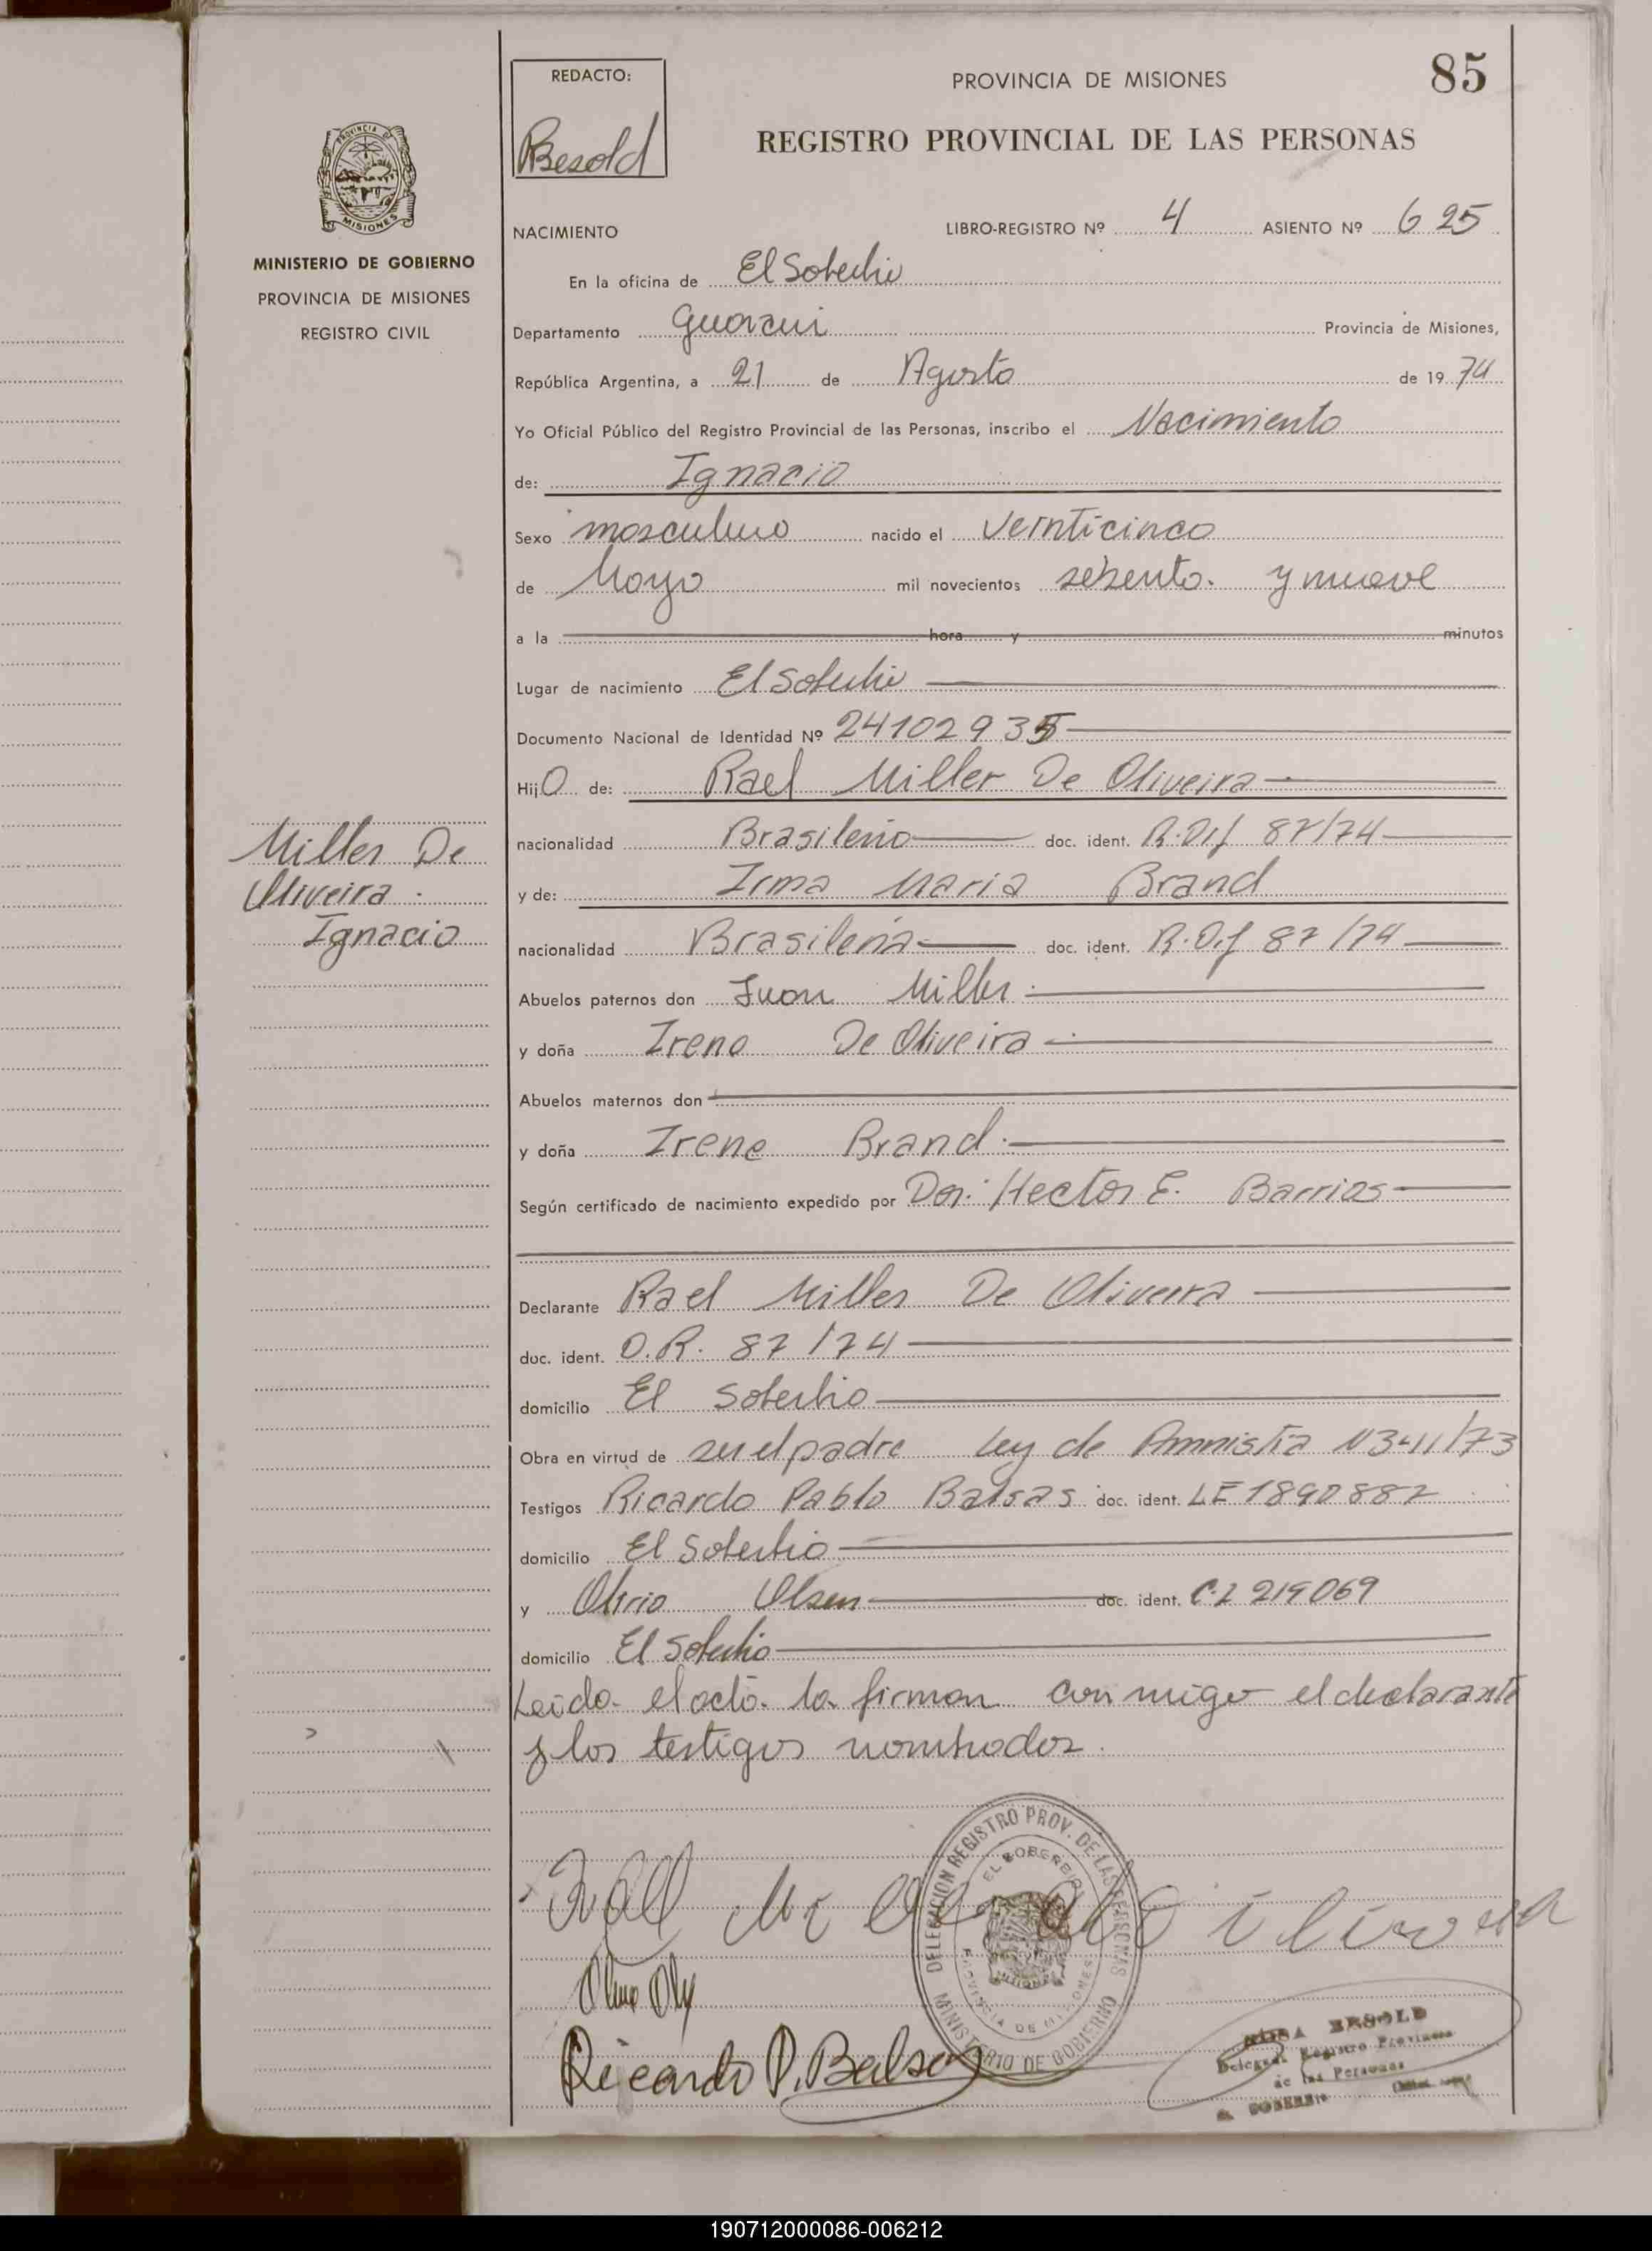 85
REDACTO:
Besold
PROVINCIA DE MISIONES
REGISTRO PROVINCIAL DE LAS PERSONAS
PROVINCIA DE
MISIONES
MINISTERIO DE GOBIERNO
PROVINCIA DE MISIONES
REGISTRO CIVIL
NACIMIENTO LIBRO-REGISTRO Nº 4 ASIENTO Nº 625
En la oficina de El Soberbio
Departamento Guarani Provincia de Misiones,
República Argentina, a 21 de Agosto de 19 74
Yo Oficial Público del Registro Provincial de las Personas, inscribo el Nacimiento
de: Ignacio
Sexo masculino nacido el veinticinco
de Mayo mil novecientos sesenta y nueve
a la hora y minutos
Lugar de nacimiento El Soberbio
Documento Nacional de Identidad Nº 24102935
Hijo de: Rael Miller De Oliveira
nacionalidad Brasileño doc. ident. R.Dif 87/74
y de: Irma Maria Brand
nacionalidad Brasileña doc. ident. R.Dif 87/74
Miller De
Oliveira
Ignacio
Abuelos paternos don Juan Miller
y doña Irena De Oliveira
Abuelos maternos don
y doña Irene Brand
Según certificado de nacimiento expedido por Dor. Hector E. Barrios
Declarante Rael Miller De Oliveira
doc. ident. D.R. 87/74
domicilio El Soberbio
Obra en virtud de ser el padre Ley de Amnistia
Testigos Ricardo Pablo Balsas doc. ident. LE 1890882
domicilio El Soberbio
y Olirio Olsen doc. ident. C.I 219069
domicilio El Soberbio
Leido el acta la firman con migo el declarante
y los testigos nombrados.
DELEGACION REGISTRO PROV. DE LAS PERSONAS
EL SOBERBIO
PROVINCIA DE MISIONES
MINISTERIO DE GOBIERNO
Ricardo P. Balsas
ROSA BESOLD
Delegada Registro Provincial
de las Personas
EL SOBERBIO
190712000086-006212